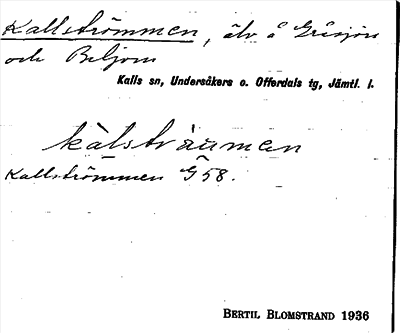 Kallströmmen, älv å Gråsjön
och Beljom
Kalls sn, Undersåkers o. Offerdals tg, Jämtl. l.
kàlstràumen
Kallströmmen G 58.
BERTIL BLOMSTRAND 1936